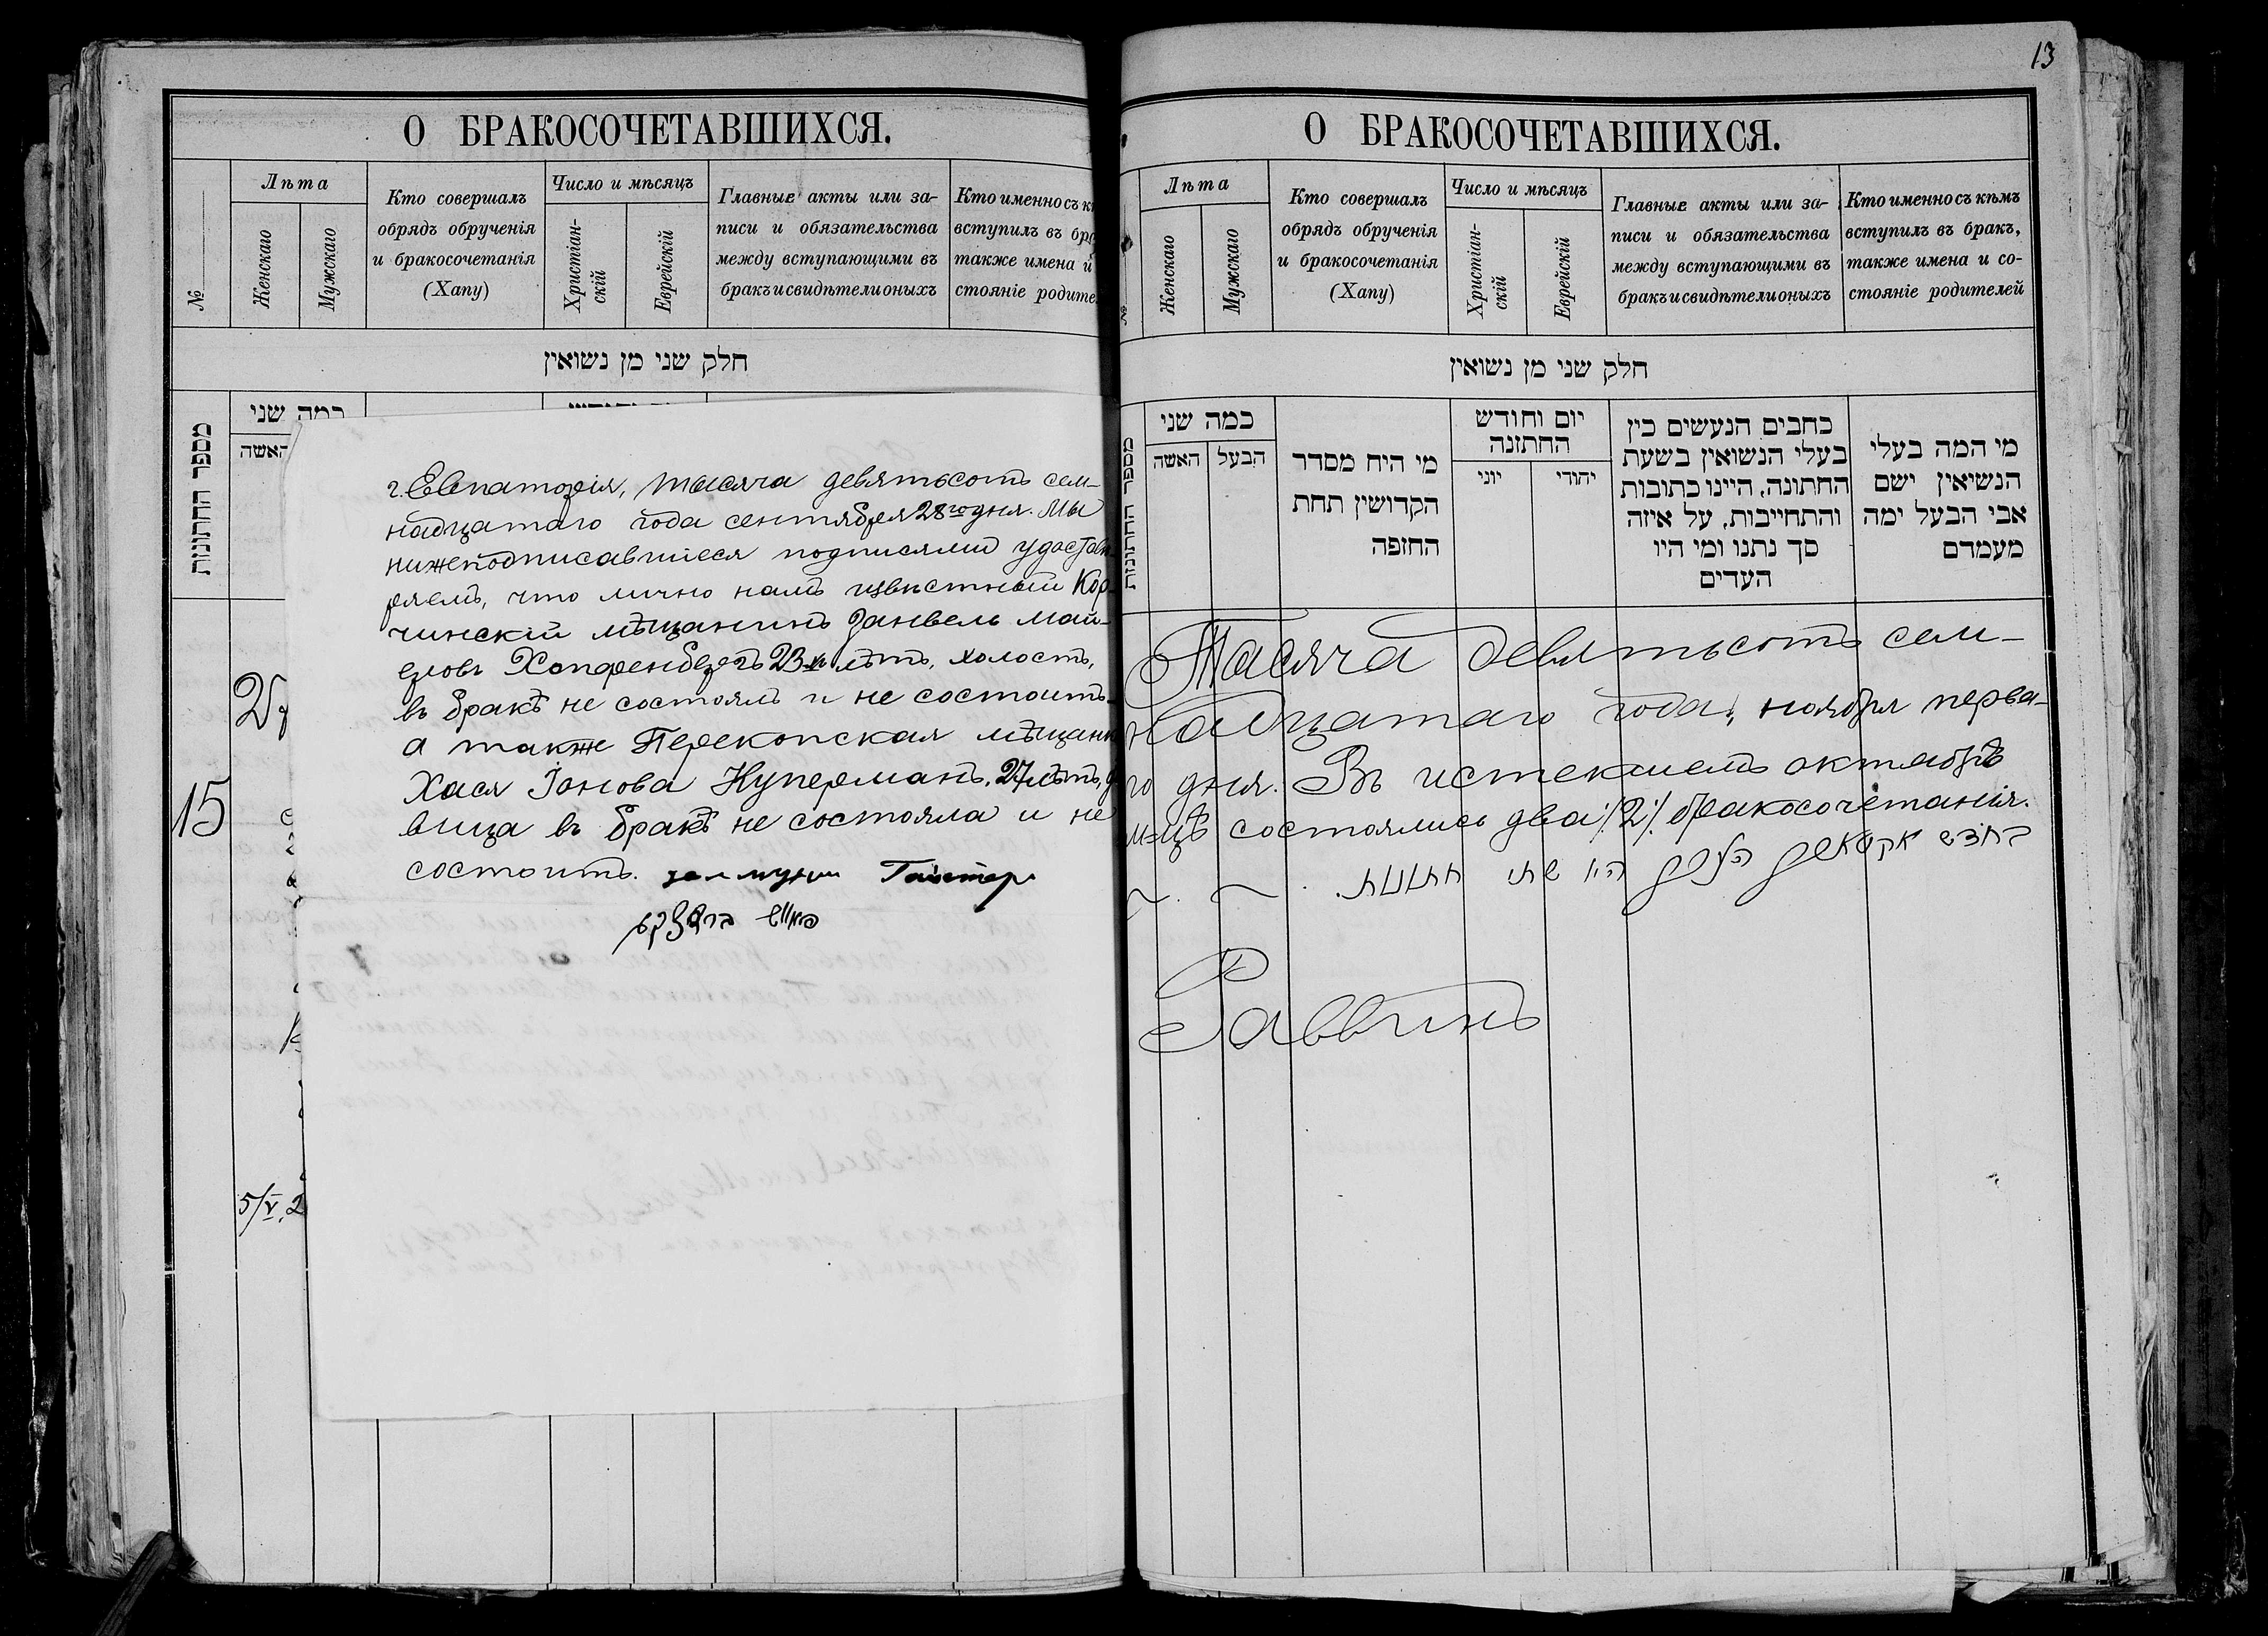 О БРАКОСОЧЕТАВШИХСЯ.
№
Лѣта
Женскаго
Мужскаго
Кто совершалъ
обрядъ обрученія
и бракосочетанія
(Хапу)
Число и мѣсяцъ
Христіан-
скій
Еврейскій
Главные акты или за-
писи и обязательства
между вступающими въ
бракъ и свидѣтели оныхъ
Кто именно съ
вступилъ въ
также имена и
стояніе
חלק שני מן נשואין
מספר החתונות
כמה שני
האשה
15
5/V.2
г. Евпаторія, тысяча девятьсотъ сем-
надцатаго года сентября 28го дня. Мы
нижеподписавшіеся подписями удостовѣ-
ряемъ, что лично намъ извѣстный Кор-
чинскій мѣщанинъ Занвель Май-
еровъ Хопфенбергъ 23-хъ лѣтъ, холостъ,
въ бракѣ не состоялъ и не состоитъ-
а также Перекопская мѣщанк
Хася Іонова Куперманъ, 27 лѣтъ, д
вица въ бракѣ не состояла и не
состоитъ.
13
О БРАКОСОЧЕТАВШИХСЯ.
№
Лѣта
Женскаго
Мужскаго
Кто совершалъ
обрядъ обрученія
и бракосочетанія
(Хапу)
Число и мѣсяцъ
Христіан-
скій
Еврейскій
Главные акты или за-
писи и обязательства
между вступающими въ
бракъ и свидѣтели оныхъ
Кто именно съ кѣмъ
вступилъ въ бракъ,
также имена и со-
стояніе родителей
חלק שני מן נשואין
מספר החתונות
כמה שני
האשה
הבעל
מי היח מסדר
הקדושין תחת
החופה
יום וחודש
החתונה
יוני
יהודי
כתבים הנעשים בין
בעלי הנשואין בשעת
החתונה, היינו כתובות
והתחייבות, על איזה
סך נתנו ומי היו
העדים
מי המה בעלי
הנשיאין ישם
אבי הבעל ימה
מעמדם
Тысяча девятьсотъ сем-
надцатаго года, ноября перва-
го дня. Въ истекшемъ октябрѣ
м-цѣ состоялись два /2/ бракосочетанія.
היו שתי חתונות.
Раввинъ